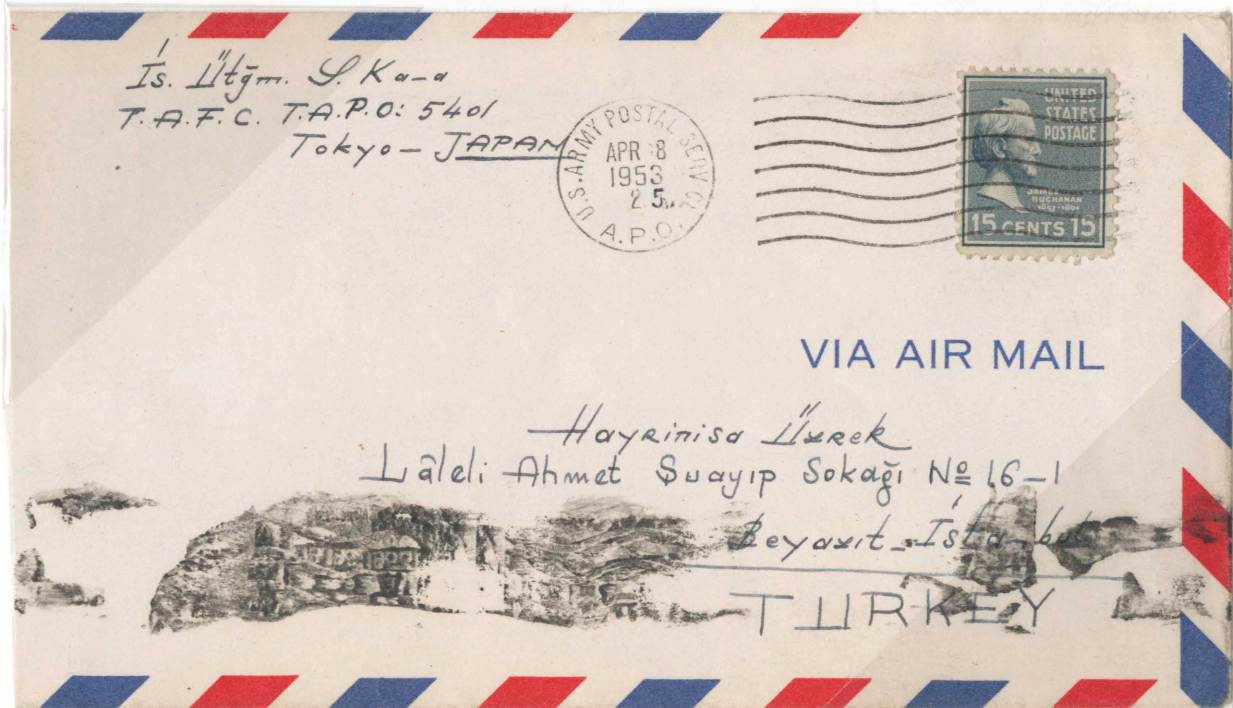 İs. Ütğm. S. Ka-a
T.A.F.C. T.A.P.O: 5401
Tokyo - JAPAN
U.S. ARMY POSTAL SERVICE
APR 8
1953
A.P.O.
UNITED
STATES
POSTAGE
JAMES
BUCHANAN
1857-1861
15 CENTS 15
VIA AIR MAIL
Hayrinisa Üzrek
Lâleli Ahmet Şuayıp Sokağı Nº 16-1
Beyazıt - İstanbul
TURKEY